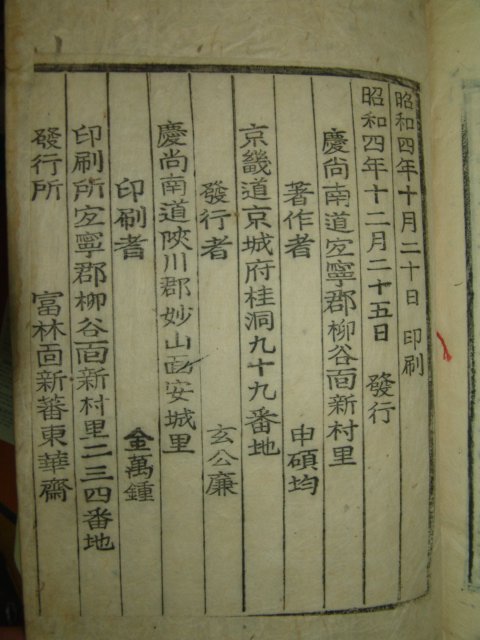 昭和四年十月二十日 印刷
昭和四年十二月二十五日 發行
慶尚南道宜寧郡柳谷面新村里
著作者 申碩均
京畿道京城府桂洞九十九番地
發行者 玄公廉
慶尚南道陜川郡妙山面安城里
印刷者 金萬鍾
印刷所宜寧郡柳谷面新村里二三四番地
發行所 富林面新蕃東華齋